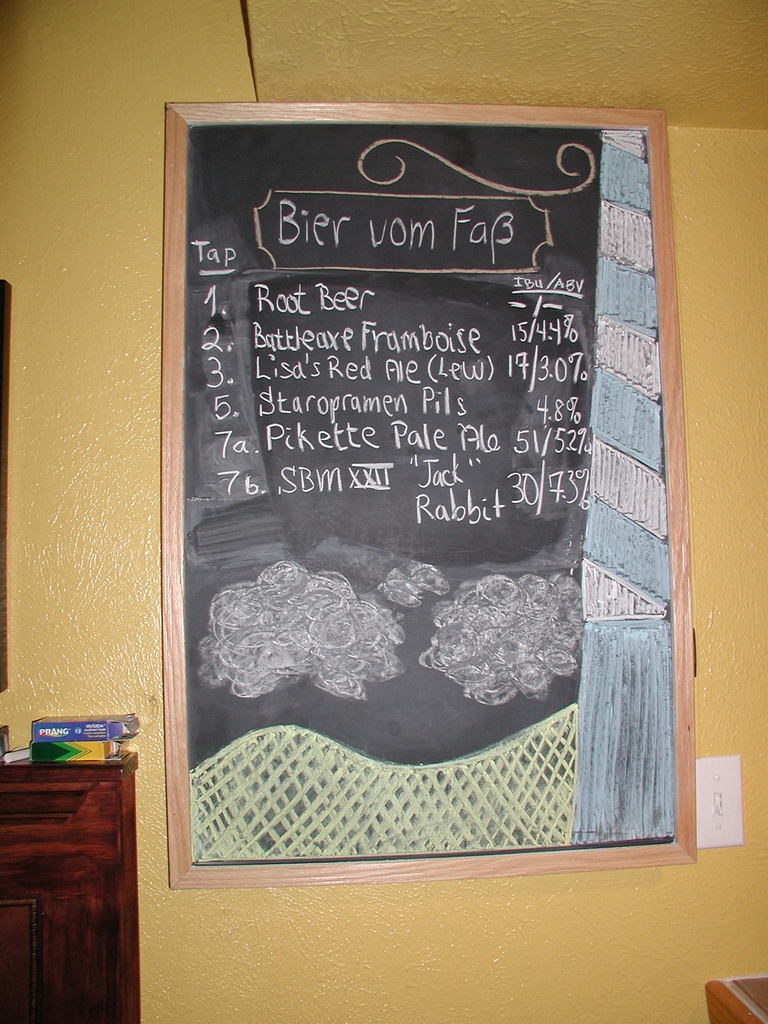 Bier vom Faß
Tap IBU/ABV
1. Root Beer -/-
2. Battleaxe Framboise 15/4.4%
3. Lisa's Red Ale (Lew) 17/3.0%
5. Staropramen Pils 4.8%
7a. Pikette Pale Ale 51/5.2%
7b. SBM XXII "Jack" 30/7.3%
Rabbit
PRANG 12 HYGIEIA